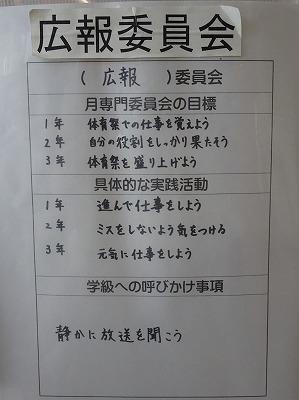 広報委員会
( 広報 )委員会
月専門委員会の目標
1年 体育祭での仕事を覚えよう
2年 自分の役割をしっかり果たそう
3年 体育祭を盛り上げよう
具体的な実践活動
1年 進んで仕事をしよう
2年 ミスをしないよう気をつける
3年 元気に仕事をしよう
学級への呼びかけ事項
静かに放送を聞こう